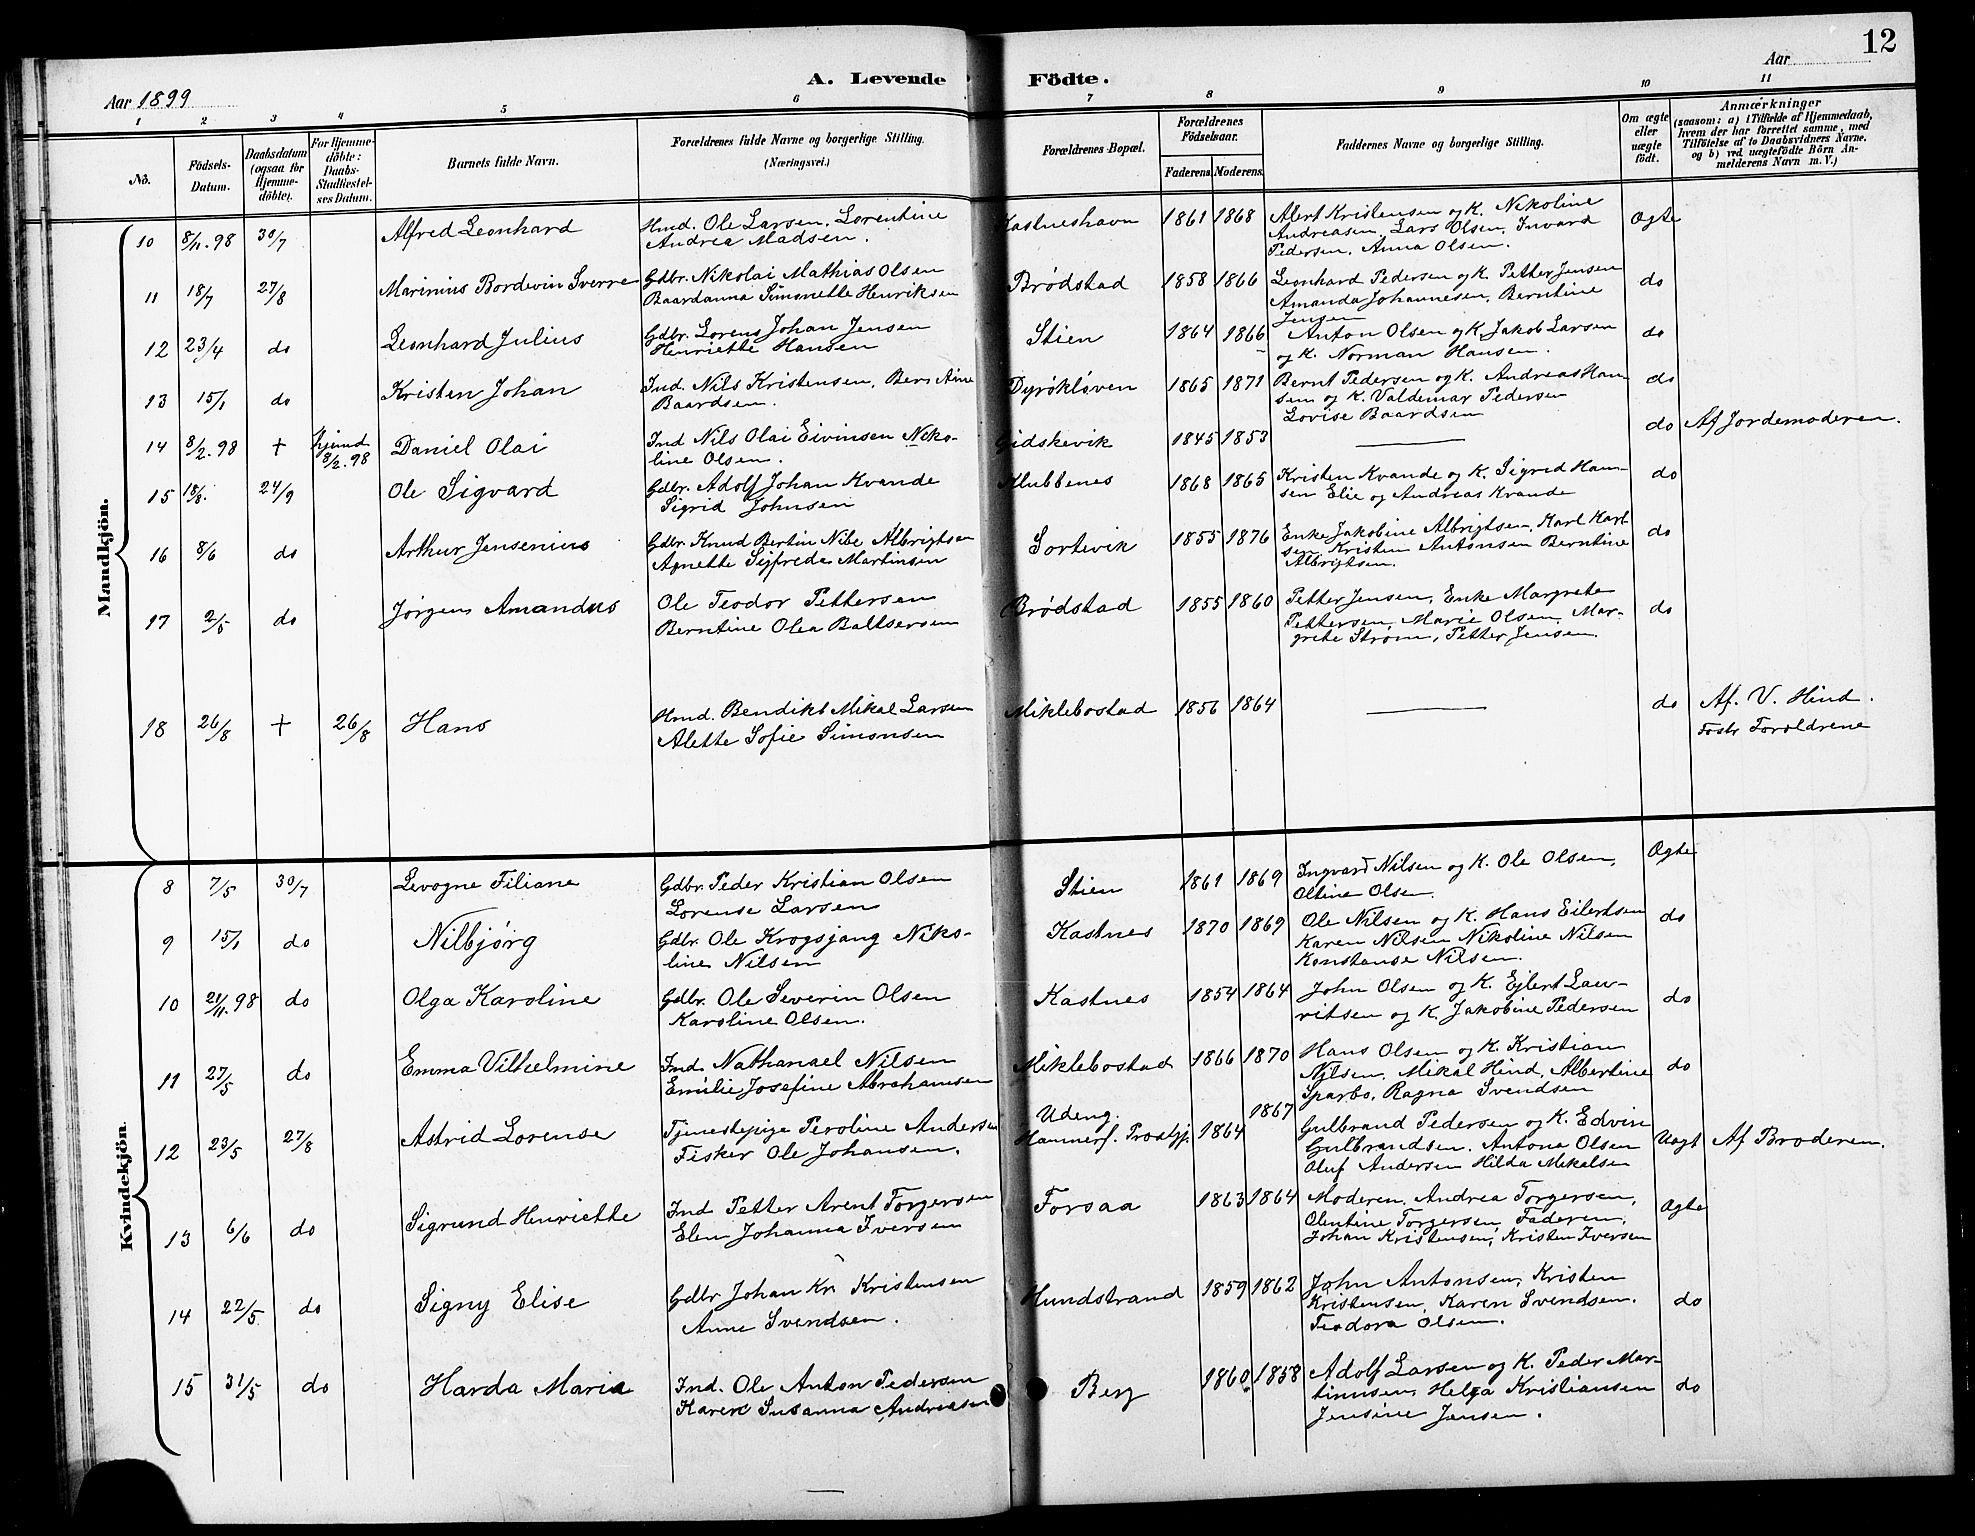 12
A. Levende Födte.
Aar 1899
Aar
1 2 3 4 5 6 7 8 9 10 11
No.
Födsels-Datum.
Daabsdatum (ogsaa for Hjemmedöbte).
For Hjemmedöbte: Daabs-Stadfæstelses Datum.
Barnets fulde Navn.
Forældrenes fulde Navne og borgerlige Stilling. (Næringsvei.)
Forældrenes Bopæl.
Forældrenes Födselsaar.
Faderens. Moderens.
Faddernes Navne og borgerlige Stilling.
Om ægte eller uægte födt.
Anmærkninger
(saasom: a) i Tilfælde af Hjemmedaab, hvem der har forrettet samme, med Tilföielse af to Daabsvidners Navne. og b) ved uægtefödte Börn Anmelderens Navn m. V.)
Mandkjön.
10 8/11.98 30/7 Alfred Leonhard Hmd. Ole Larsen. Lorentine Andrea Madsen. Kastneshavn 1861 1868 Alert Kristensen og K. Nikoline Andreasen, Lars Olsen, Invard Pedersen, Anna Olsen. Ægte
11 18/7 27/8 Marinius Bordevin Sverre Gdbr. Nikolai Mathias Olsen Baardanna Simonette Henriksen Brødstad 1858 1866 Leonhard Pedersen og K. Petter Jensen Amanda Johannesen, Berntine Jensen do
12 23/4 do Leonhard Julius Gdbr. Lorens Johan Jensen Henriette Hansen Stien 1864 1866 Anton Olsen og K. Jakob Larsen og K. Norman Hansen. do
13 15/1 do Kristen Johan Ind. Nils Kristensen, Baardsen. Dyrøkløven 1865 1871 Bernt Pedersen og K. Andreas Hansen og K. Valdemar Pedersen Lovise Baardsen do
14 8/2.98 + hjemd 8/2.98 Daniel Olai Ind Nils Olai Eivinsen Nikoline Olsen. Gidskevik 1845 1853 — do Af Jordemoderen.
15 18/8. 24/9 Ole Sigvard Gdbr. Adolf Johan Kvande Sigrid Johnsen Klubbenes 1868 1865 Kristen Kvande og K. Sigrid Hansen Elie og Andreas Kvande do
16 8/6 do Arthur Jensenius Gdbr. Knud Bertin Nibe Albrigtsen Agnette Sifrede Martinsen Sortevik 1855 1876 Enke Jakobine Albrigtsen, Karl Karlsen, Kristen Antonsen Berntine Albrigtsen. do
17 2/5 do Jørgens Amandus Ole Teodor Pettersen Berntine Olea Baltsersen Brødstad 1855 1860 Petter Jensen, Enke Margrete Pettersen, Marie Olsen, Margrete Strøm, Petter Jensen. do
18 26/8 + 26/8 Hans Hmd. Bendikt Mikal Larsen Alette Sofie Simonsen Miklebostad 1856 1864 — do Af. V. Hind. Fostr Foroldrene
Kvindekjön.
8 7/5 30/7 Levogne Filiane Gdbr. Peder Kristian Olsen Lorense Larsen Stien 1861 1869 Ingvard Nilsen og K. Ole Olsen, Oltine Olsen. Ægte
9 15/1 do Nilbjørg Gdbr. Ole Krogsjang Nikoline Nilsen Kastnes 1870 1869 Ole Nilsen og K. Hans Eilertsen Karen Nilsen Nikoline Nilsen Konstanse Nilsen. do
10 21/11.98 do Olga Karoline Gdbr. Ole Severin Olsen Karoline Olsen. Kastnes 1854 1864 John Olsen og K. Ejlert Lauritsen og K. Jakobine Pedersen do
11 27/5 do Emma Vilhelmine Ind. Nathanael Nilsen Emilie Josefine Abrahamsen Miklebostad 1866 1870 Hans Olsen og K. Kristian Nilsen, Mikal Hind, Albertine Sparbo, Ragna Svendsen do
12 23/5 27/8 Astrid Lorense Tjenestepige Peroline Andersen Fisker Ole Johansen. Udeng. Hammerf. Prostgj. 1864 1867 Gulbrand Pedersen og K. Edvin Gulbrandsen. Antona Olsen Oluf Andersen Hilda Mikalsen Uægt Af Broderen.
13 6/6 do Sigrund Henriette Ind Petter Arent Torgersen Elen Johanna Iversen Forsaa 1863 1864 Moderen, Andrea Torgersen, Olentine Torgersen, Faderen, Johan Kristensen, Kristen Iversen Ægte
14 22/5 do Signy Elise Gdbr Johan Kr. Kristensen Anne Svendsen. Hundstrand 1859 1862 John Antonsen, Kristen Kristensen, Karen Svendsen. Teodora Olsen. do
15 31/5 do Harda Maria Ind. Ole Anton Pedersen Karen Susanna Andreasen Berg 1860 1858 Adolf Larsen og K. Peder Martinusen, Helga Kristiansen Jensine Jensen. do